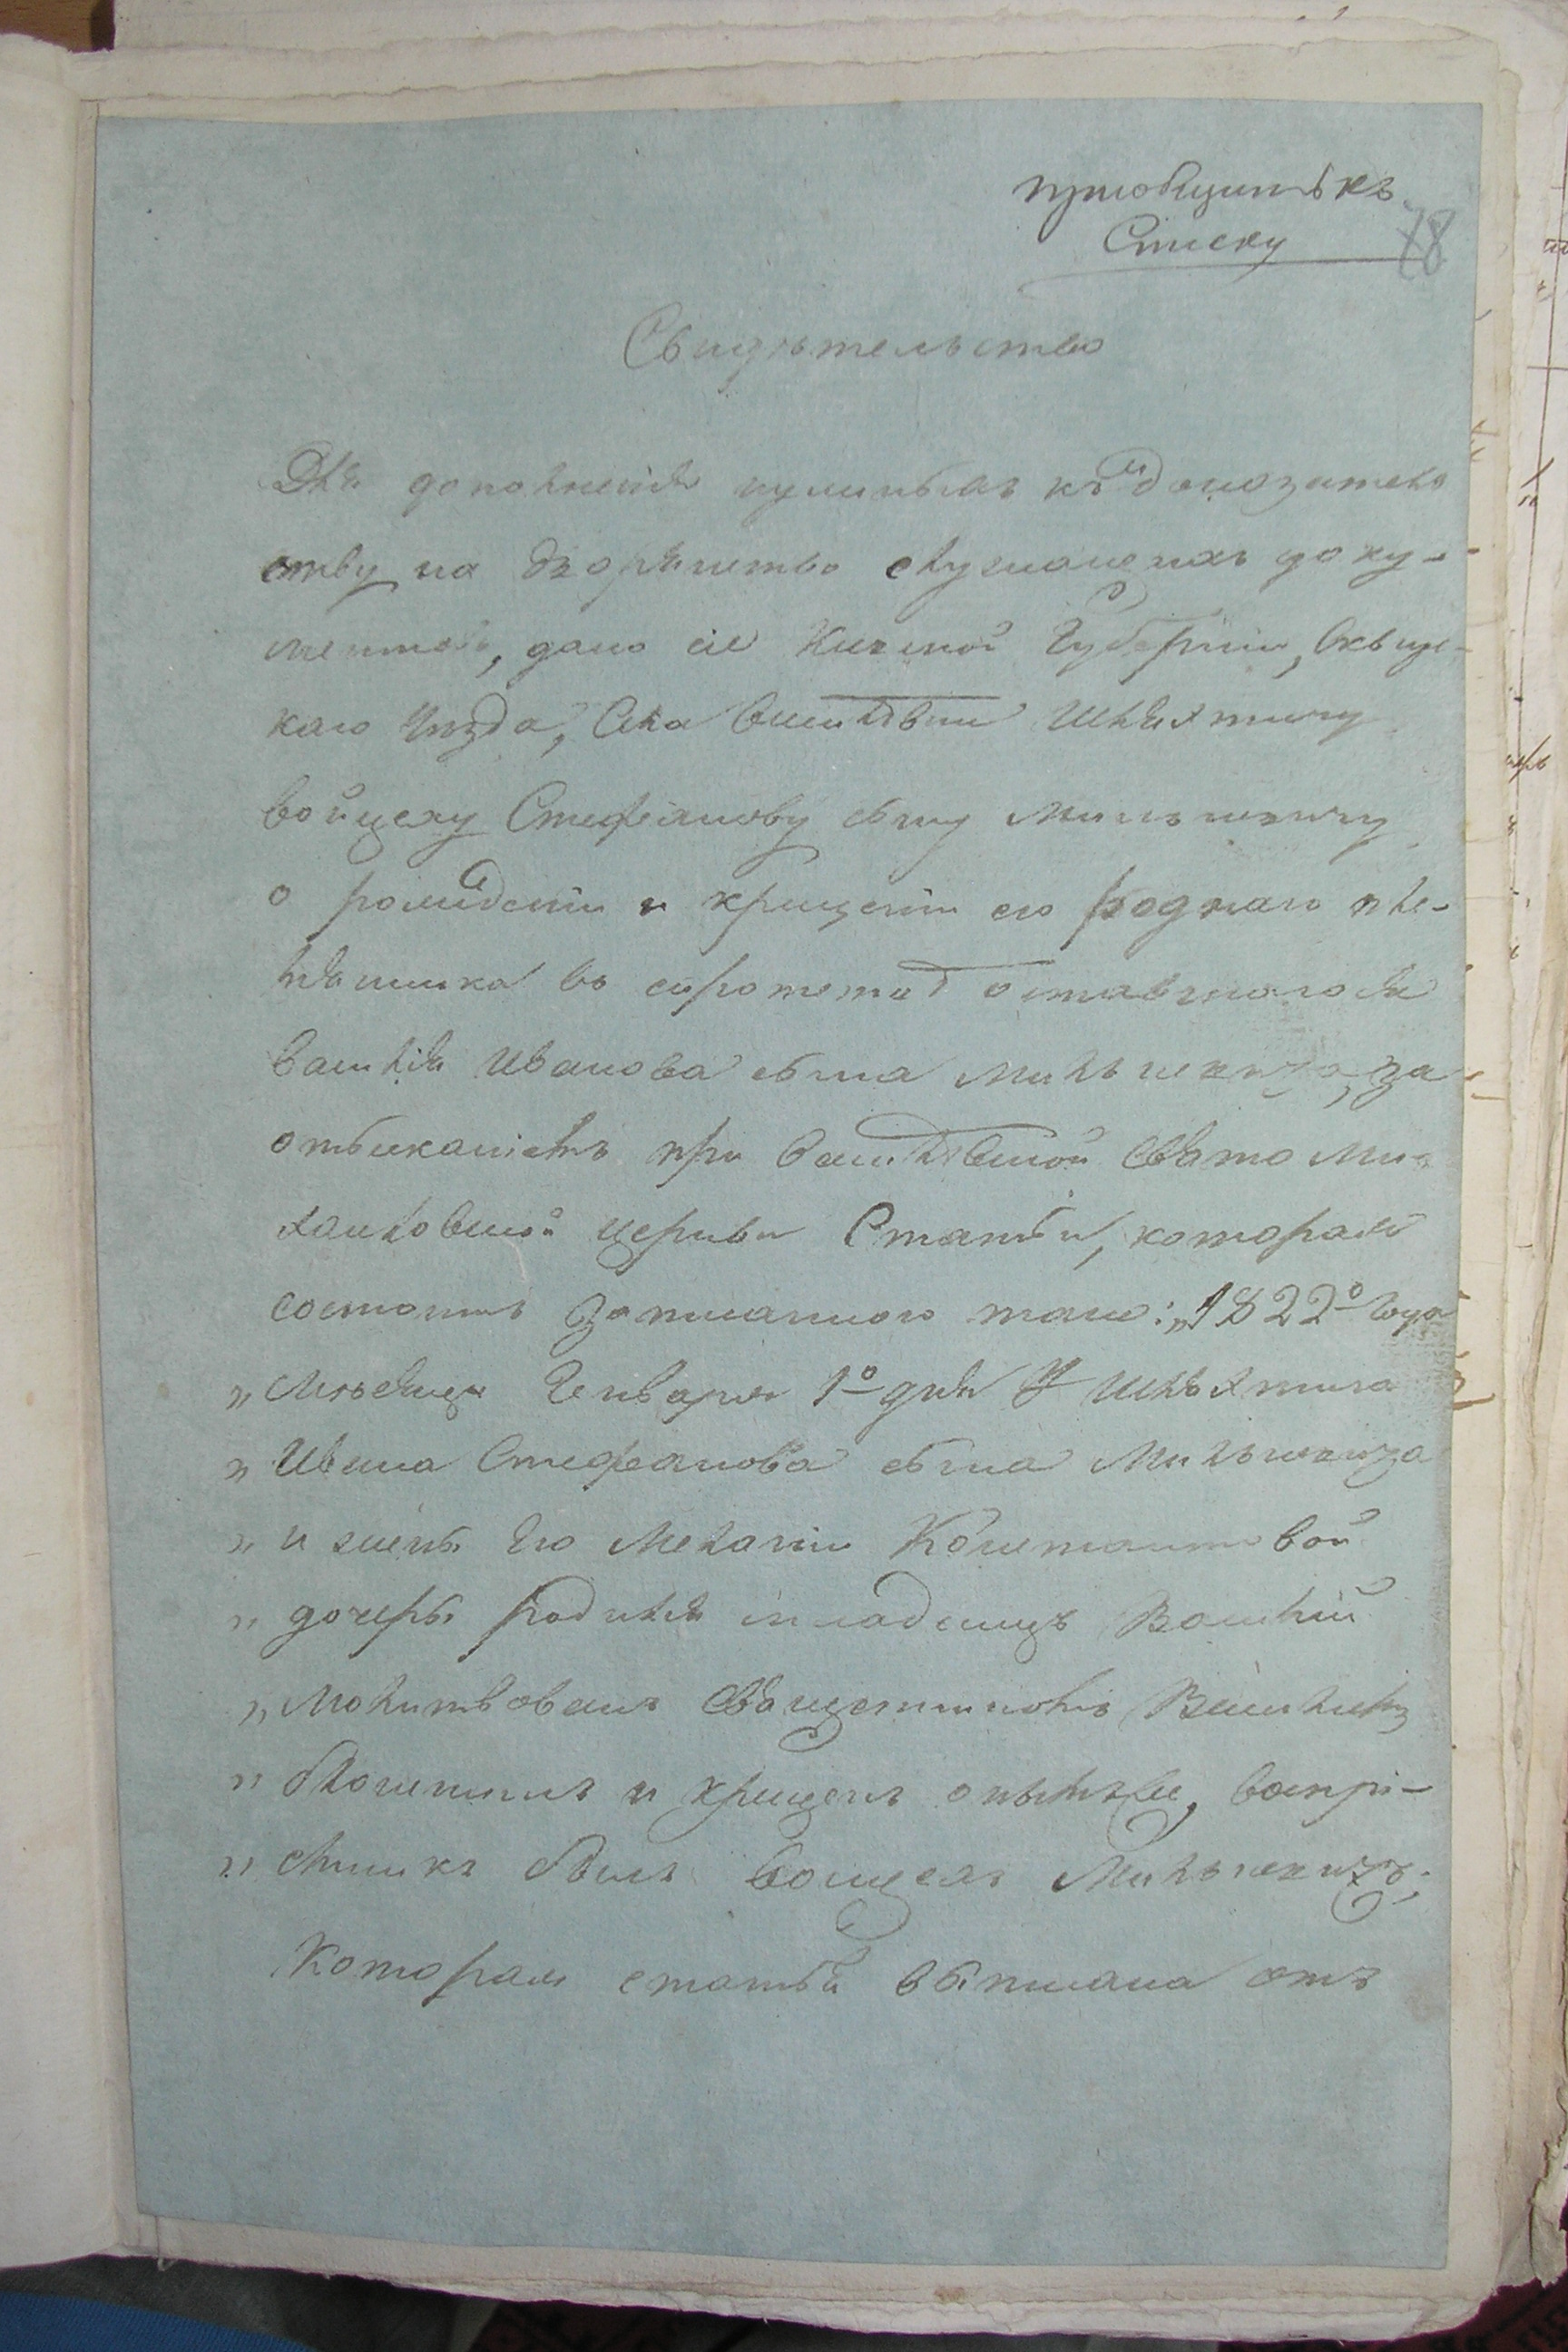 приобщить къ
Списку
78
Свидѣтельство
Для дополненія нужныхъ къ доказатель
ству на дворянство служащихъ доку-
ментовъ, дано сіе Кіевской Губерніи, Сквир-
каго Уѣзда, Села Шляхтичу
Войцеху Стефанову сыну Мильшевичу
о рожденіи и крещеніи его роднаго пле-
мянника въ сиротствѣ оставшагося
Василія Иванова сына Мильшевича, за
отысканіемъ при Свято Ми-
хайловской церкви Статьи, которая
состоитъ записанною тако: „1822о года
„ Мѣсяца Генваря 1о дня У Шляхтича
„ Ивана Стефанова сына Мильшевича
„ и жены Его Меланіи Константиновой
„ дочеры родился младенецъ Василій
„ Молитвованъ Священникомъ
„ и крещенъ онымъ же, воспрі-
„ емникъ былъ Войцехъ Мильшевичъ;
Которая статья выписана отъ